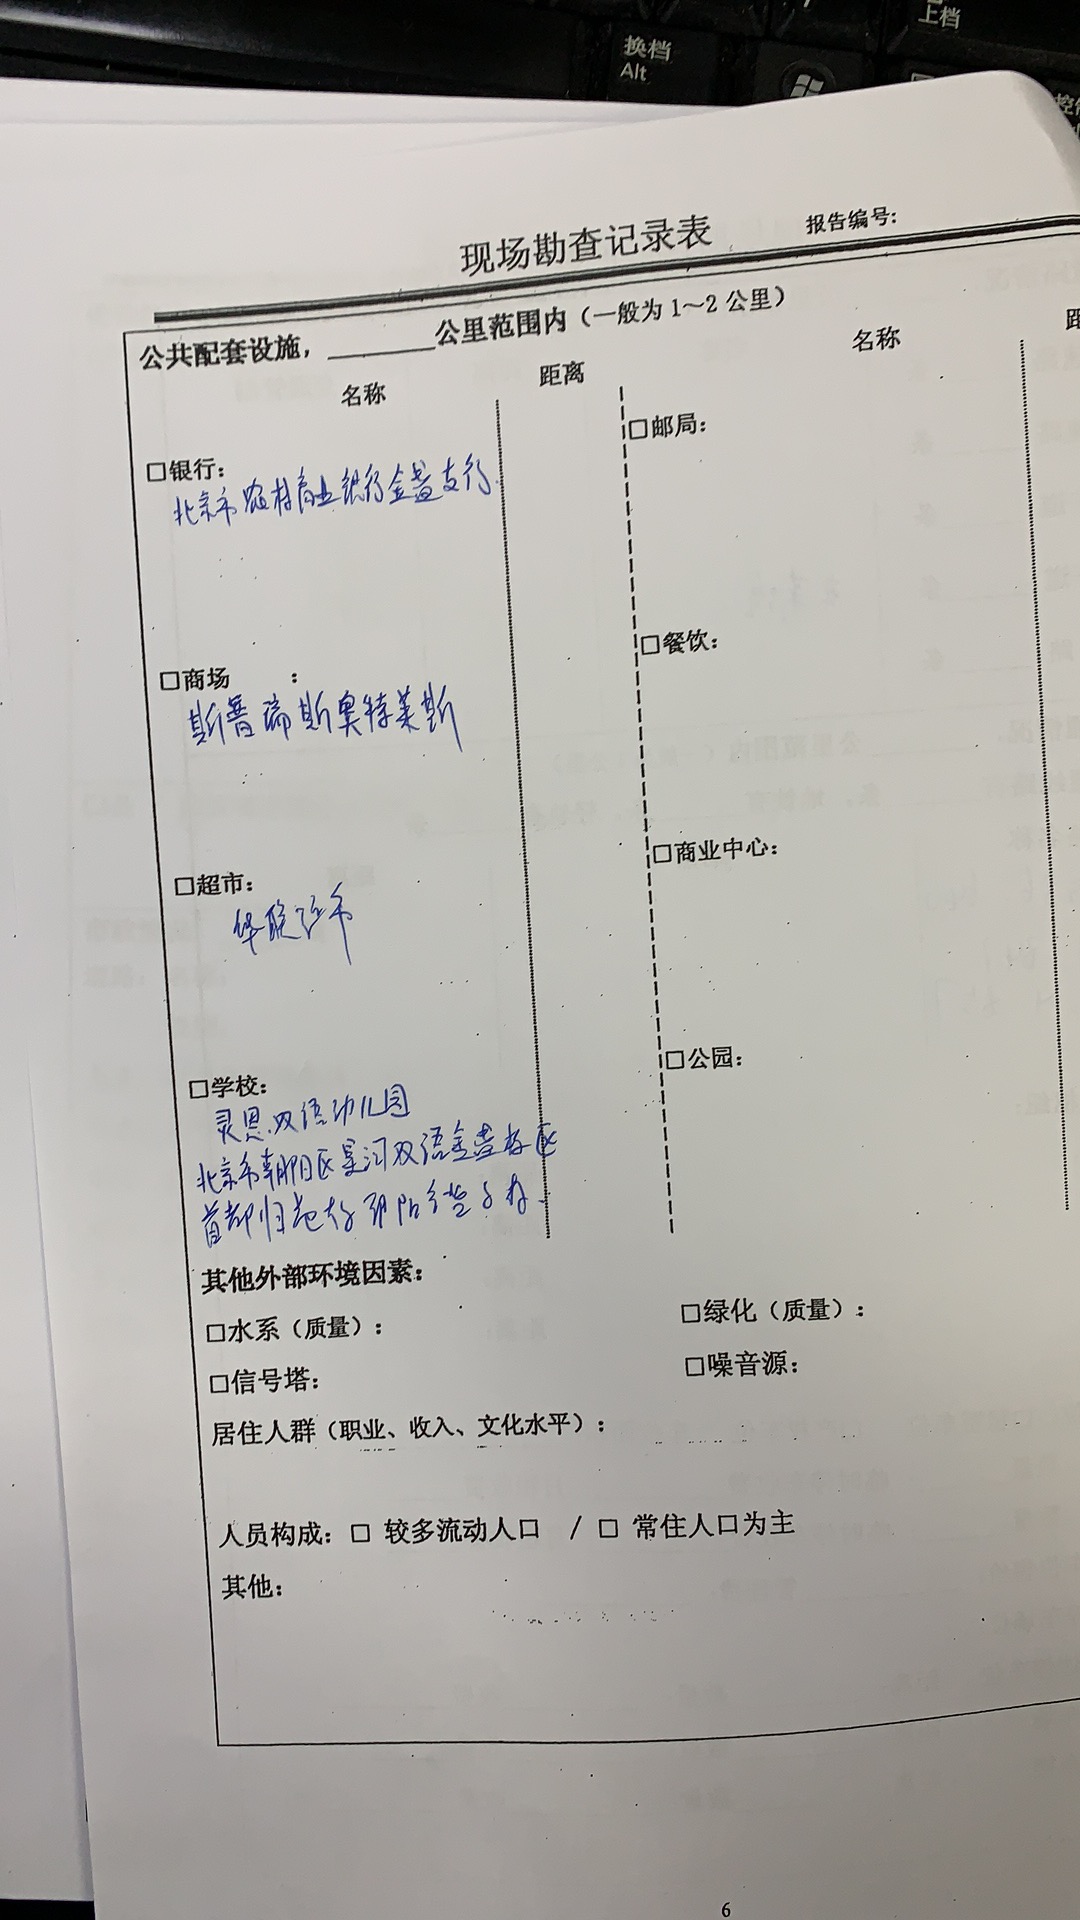 上档
换档
Alt
现场勘查记录表
报告编号:
公共配套设施，________公里范围内（一般为 1～2 公里）
名称
距离
名称
□银行：
北京市农村商业银行金盏支行
□邮局：
□商场　　：
斯普瑞斯奥特莱斯
□餐饮：
□超市：
华联超市
□商业中心：
□学校：
灵恩双语幼儿园
北京市朝阳区星河双语金盏校区
首都师范
□公园：
其他外部环境因素：
□水系（质量）：
□绿化（质量）：
□信号塔：
□噪音源：
居住人群（职业、收入、文化水平）：
人员构成：□ 较多流动人口　/ □ 常住人口为主
其他：
6